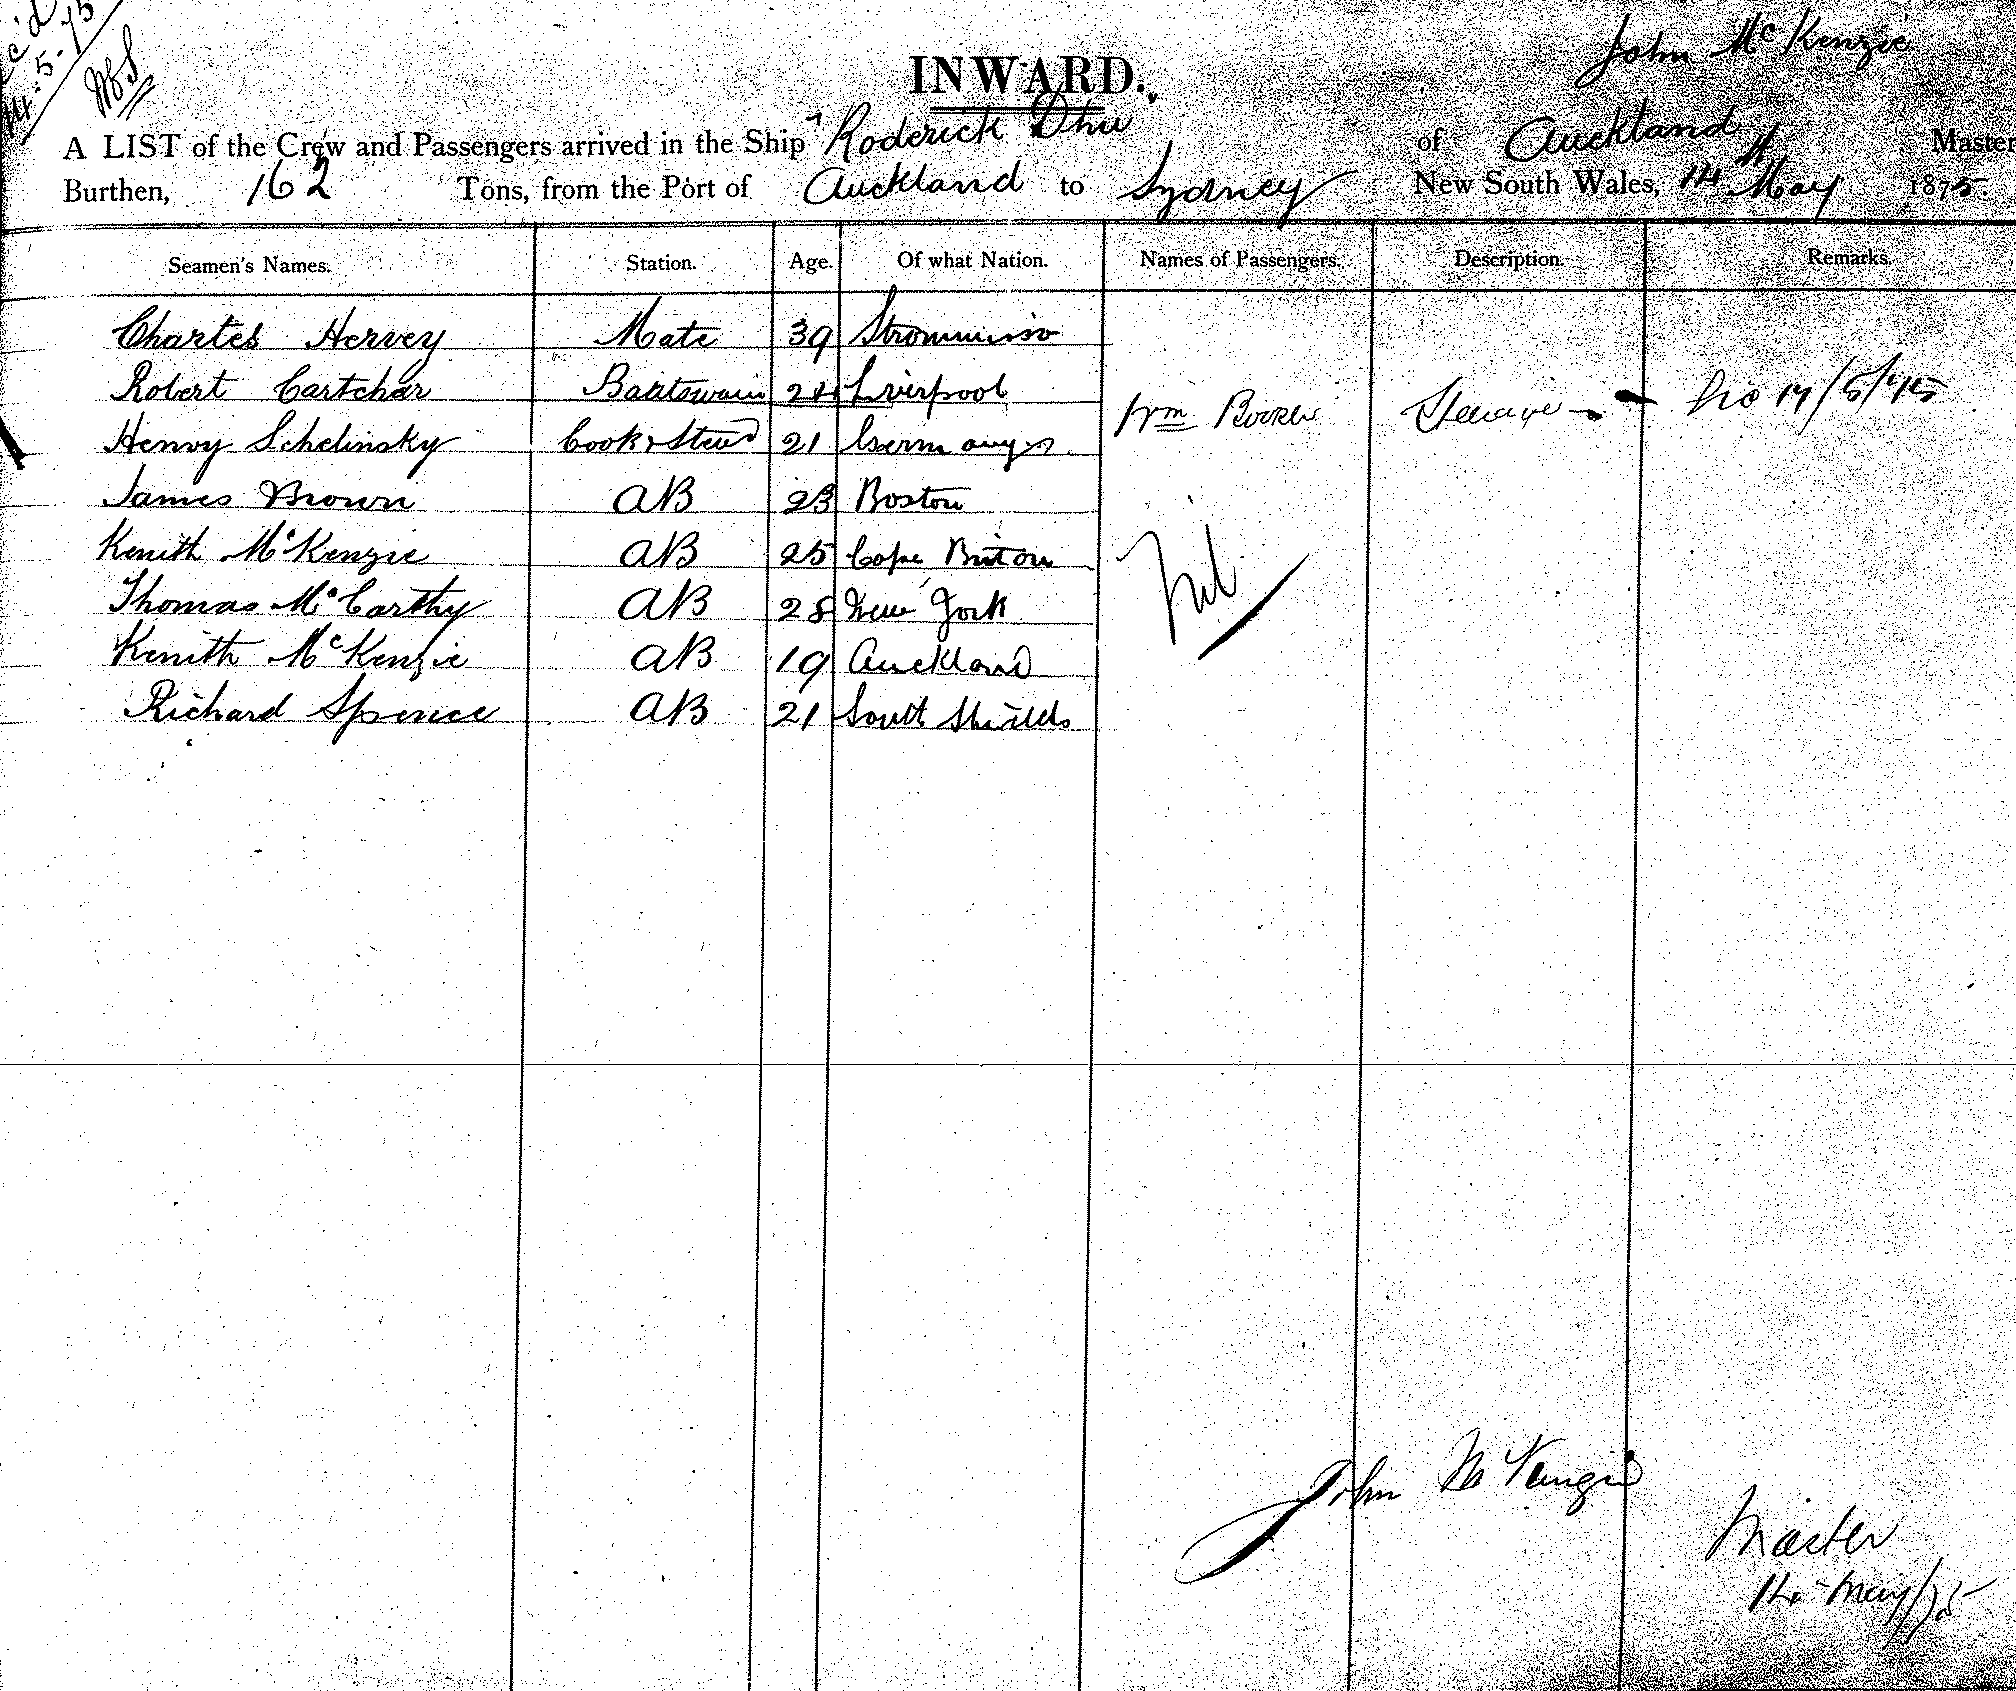 14-5-75
John McKenzie
INWARD.
A LIST of the Crew and Passengers arrived in the Ship Roderick Dhu of Auckland Master
Burthen, 162 Tons, from the Port of Auckland to Sydney New South Wales, 14 May 1875.
Seamen's Names. Station. Age. Of what Nation. Names of Passengers. Description. Remarks.
Charles Hervey Mate 39
Robert Cartchar Boatswain 24 Liverpool
Henry Schelinsky Cook & Stewd 21 Germany Wm 17/5/75
James Brown AB 23 Boston
Kenith McKenzie AB 25 Cape Briton
Thomas McCarthy AB 28 New York Nil
Kenith McKenzie AB 19 Auckland
Richard Spence AB 21 South Shields
John McKenzie
Master
14 May/75